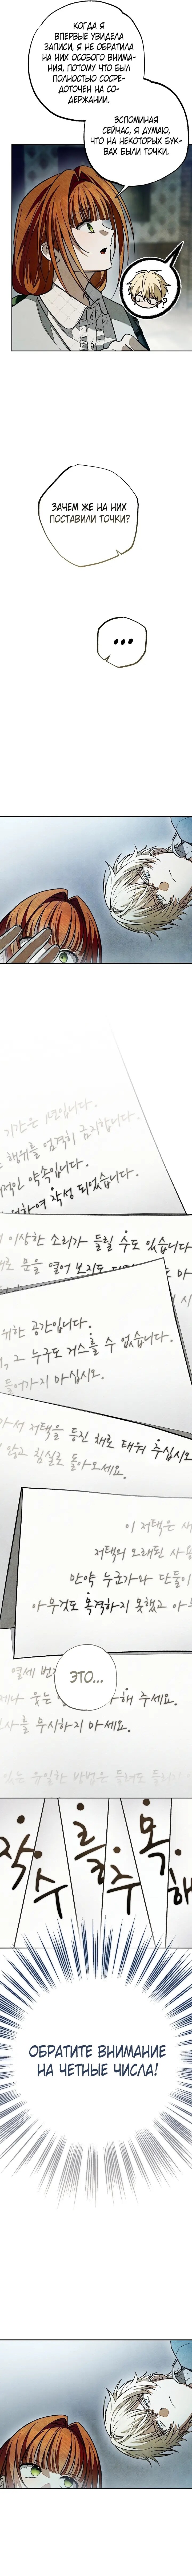 КОГДА Я
ВПЕРВЫЕ УВИДЕЛА
ЗАПИСИ, Я НЕ ОБРАТИЛА
НА НИХ ОСОБОГО ВНИМА-
НИЯ, ПОТОМУ ЧТО БЫЛ
ПОЛНОСТЬЮ СОСРЕ-
ДОТОЧЕН НА СО-
ДЕРЖАНИИ.
ВСПОМИНАЯ
СЕЙЧАС, Я ДУМАЮ,
ЧТО НА НЕКОТОРЫХ БУК-
ВАХ БЫЛИ ТОЧКИ.
?
ЗАЧЕМ ЖЕ НА НИХ
ПОСТАВИЛИ ТОЧКИ?
...
기간은 1년입니다.
행위를 엄격히 금지합니다.
적인 약속입니다.
하여 작성 되었습니다.
이상한 소리가 들릴 수도 있습니다
로 문을 열어 보지도
위한 공간입니다.
, 그 누구도 거스를 수 없습니다.
들어가지 마십시오.
서 저택을 등진 채로 태워 주십시오
않고 침실로 돌아오세요.
이 저택은
저택의 오래된 사용
만약 누군가나 단둘이
아무것도 목격하지 못했고 아무
열세 번
ЭТО...
제나 웃는
해 주세요.
사를 무시하지 마세요.
있는 유일한 방법은
작 수 를 주 목 해
ОБРАТИТЕ ВНИМАНИЕ
НА ЧЕТНЫЕ ЧИСЛА!